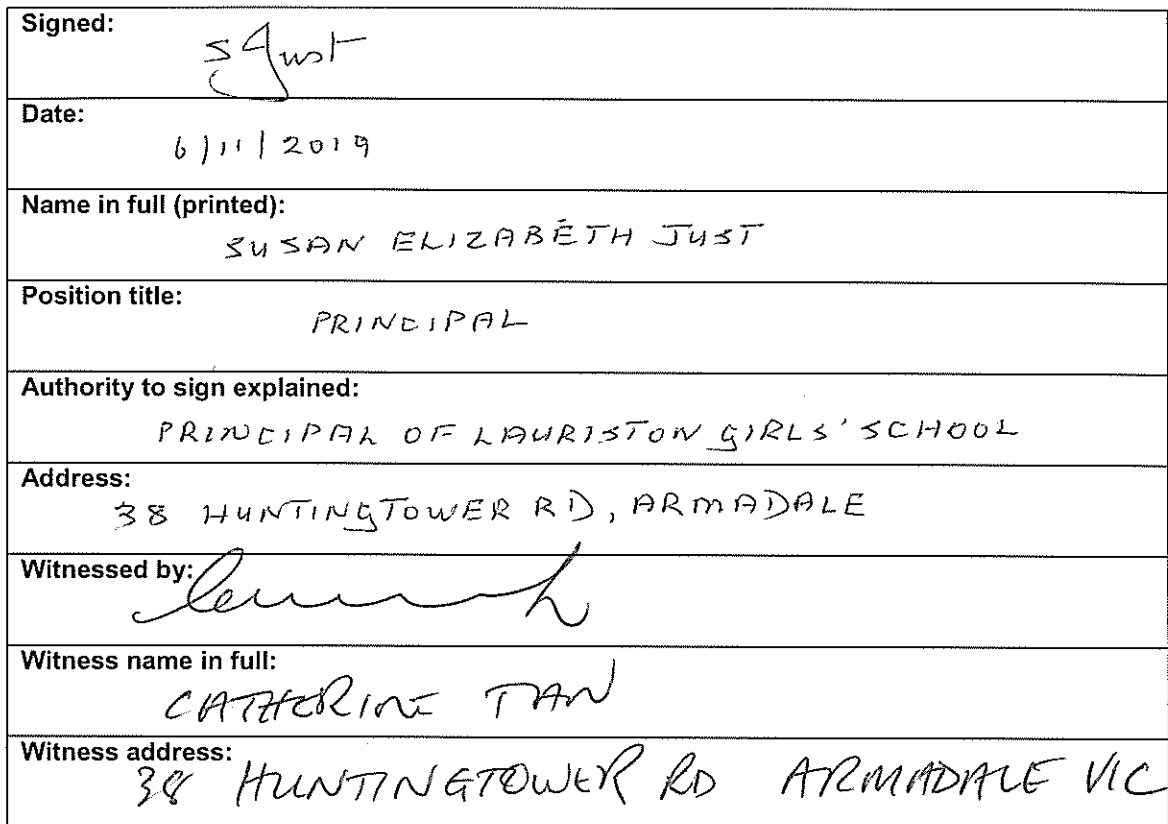 Signed:
S Just
Date:
6/11/2019
Name in full (printed):
SUSAN ELIZABETH JUST
Position title:
PRINCIPAL
Authority to sign explained:
PRINCIPAL OF LAURISTON GIRLS' SCHOOL
Address:
38 HUNTINGTOWER RD, ARMADALE
Witnessed by:
Witness name in full:
CATHERINE TAN
Witness address:
38 HUNTINGTOWER RD ARMADALE VIC